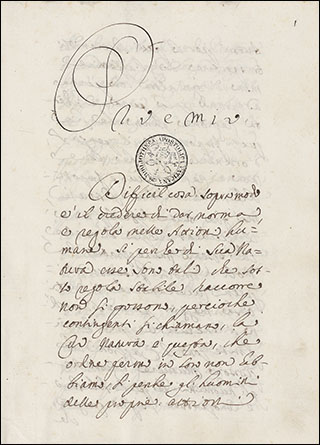 1
Difficil cosa sopra modo
è il credere di dar norma,
e regola nelle Azioni hu-
mane, sì perche di sua Na-
tura esse sono tali, che sot-
to regola stabile raccore
non si possono, percioche
contingenti si chiamano, la
di Natura è questa, che
ordine fermo in loro non hab-
biamo, sì perche gli huomini
delle proprie azioni